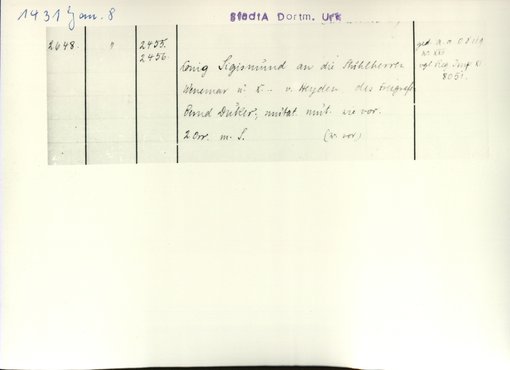 1431 Jan. 8
StadtA Dortm. Urk
2648 " 2455.
2456.
König Sigismund an die Stuhlherren
Wenemar u K. v. Heyden des Freigrafen
Ernd Düker, mutat. mut. wie vor.
2 Orr. m. S. (w. vor)
ged. a. a. O
vgl. Reg. Imp. XI
8051.